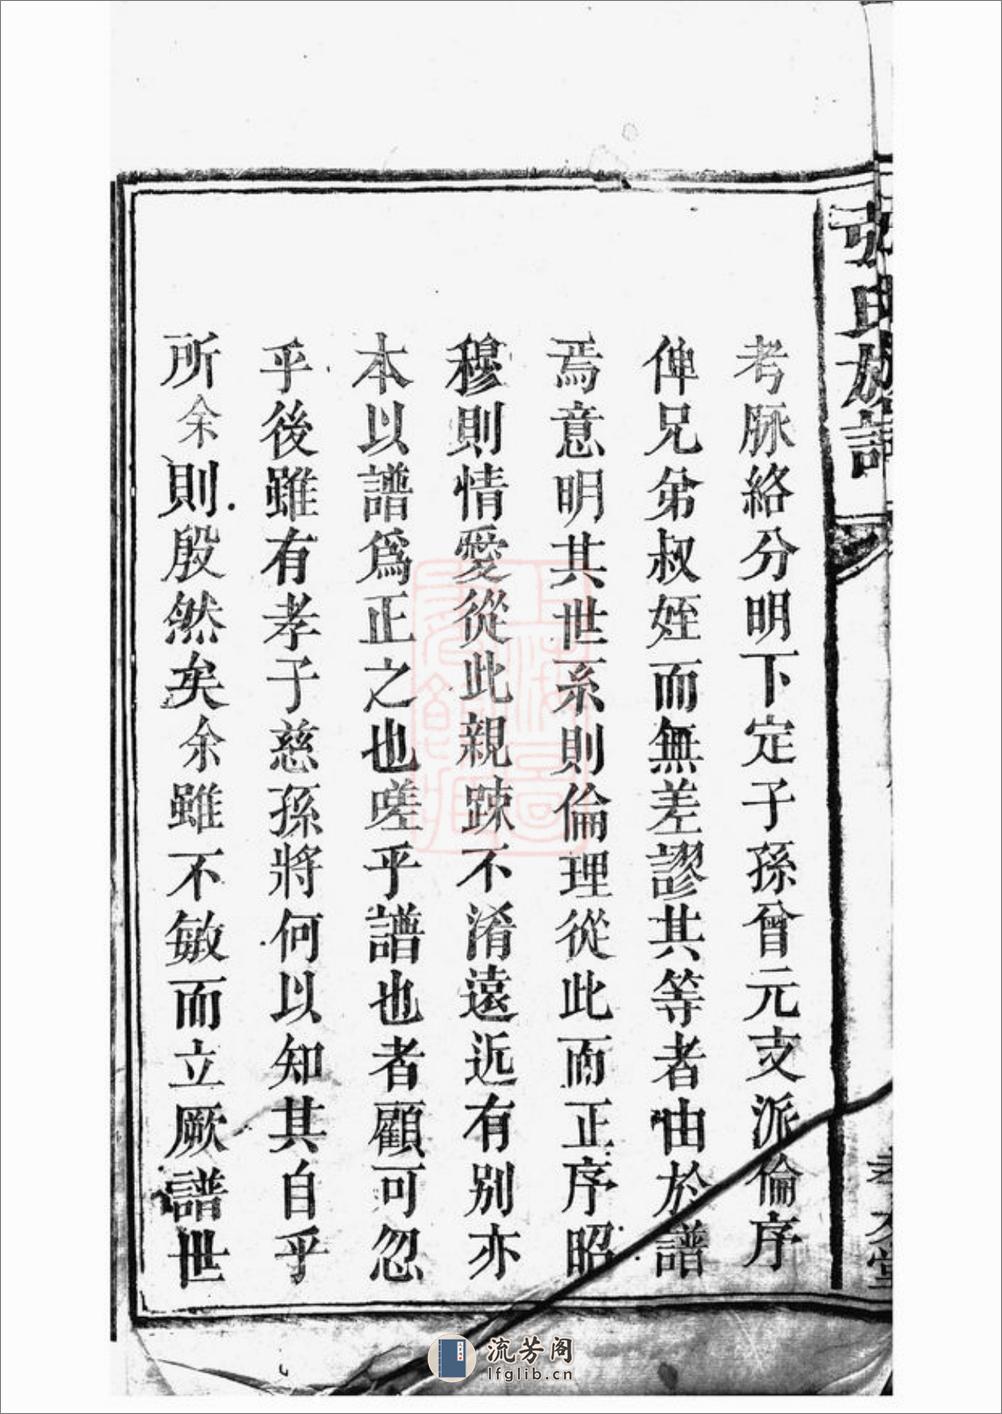 張氏族譜
考脉絡分明下定子孫曾元支派倫序
俾兄弟叔姪而無差謬其等者由於譜
焉意明其世系則倫理從此而正序昭
穆則情愛從此親踈不淆遠近有別亦
本以譜爲正之也嗟乎譜也者顧可忽
乎後雖有孝子慈孫將何以知其自乎
所余則殷然矣余雖不敏而立厥譜世
流芳阁
lfglib.cn